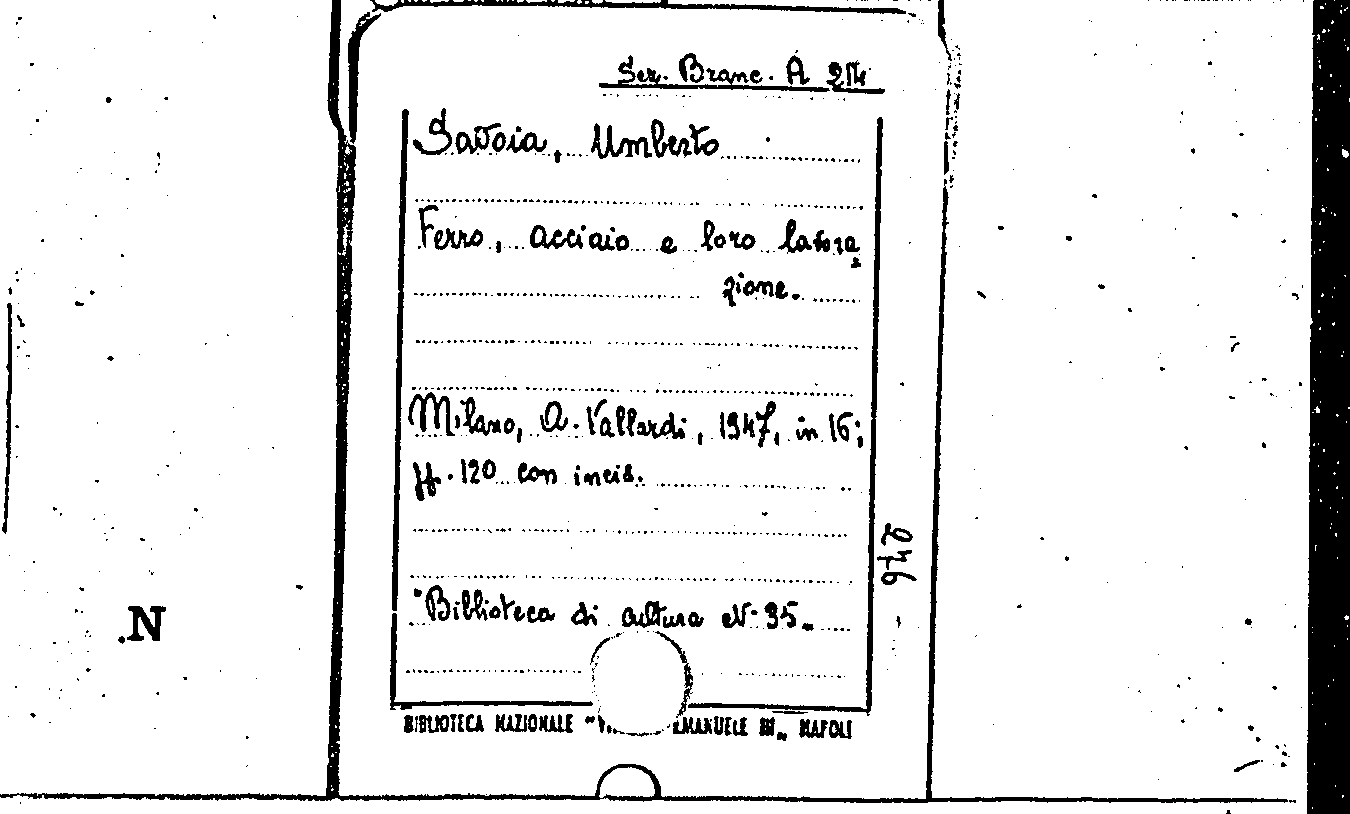 Ser. Branc. A 214
Savoia, Umberto
Ferro, acciaio e loro lavora
zione.
Milano, A. Vallardi, 1947, in 16;
pp. 120 con incis.
"Biblioteca di cultura N. 35„
246
.N
BIBLIOTECA NAZIONALE " EMANUELE III„ NAPOLI